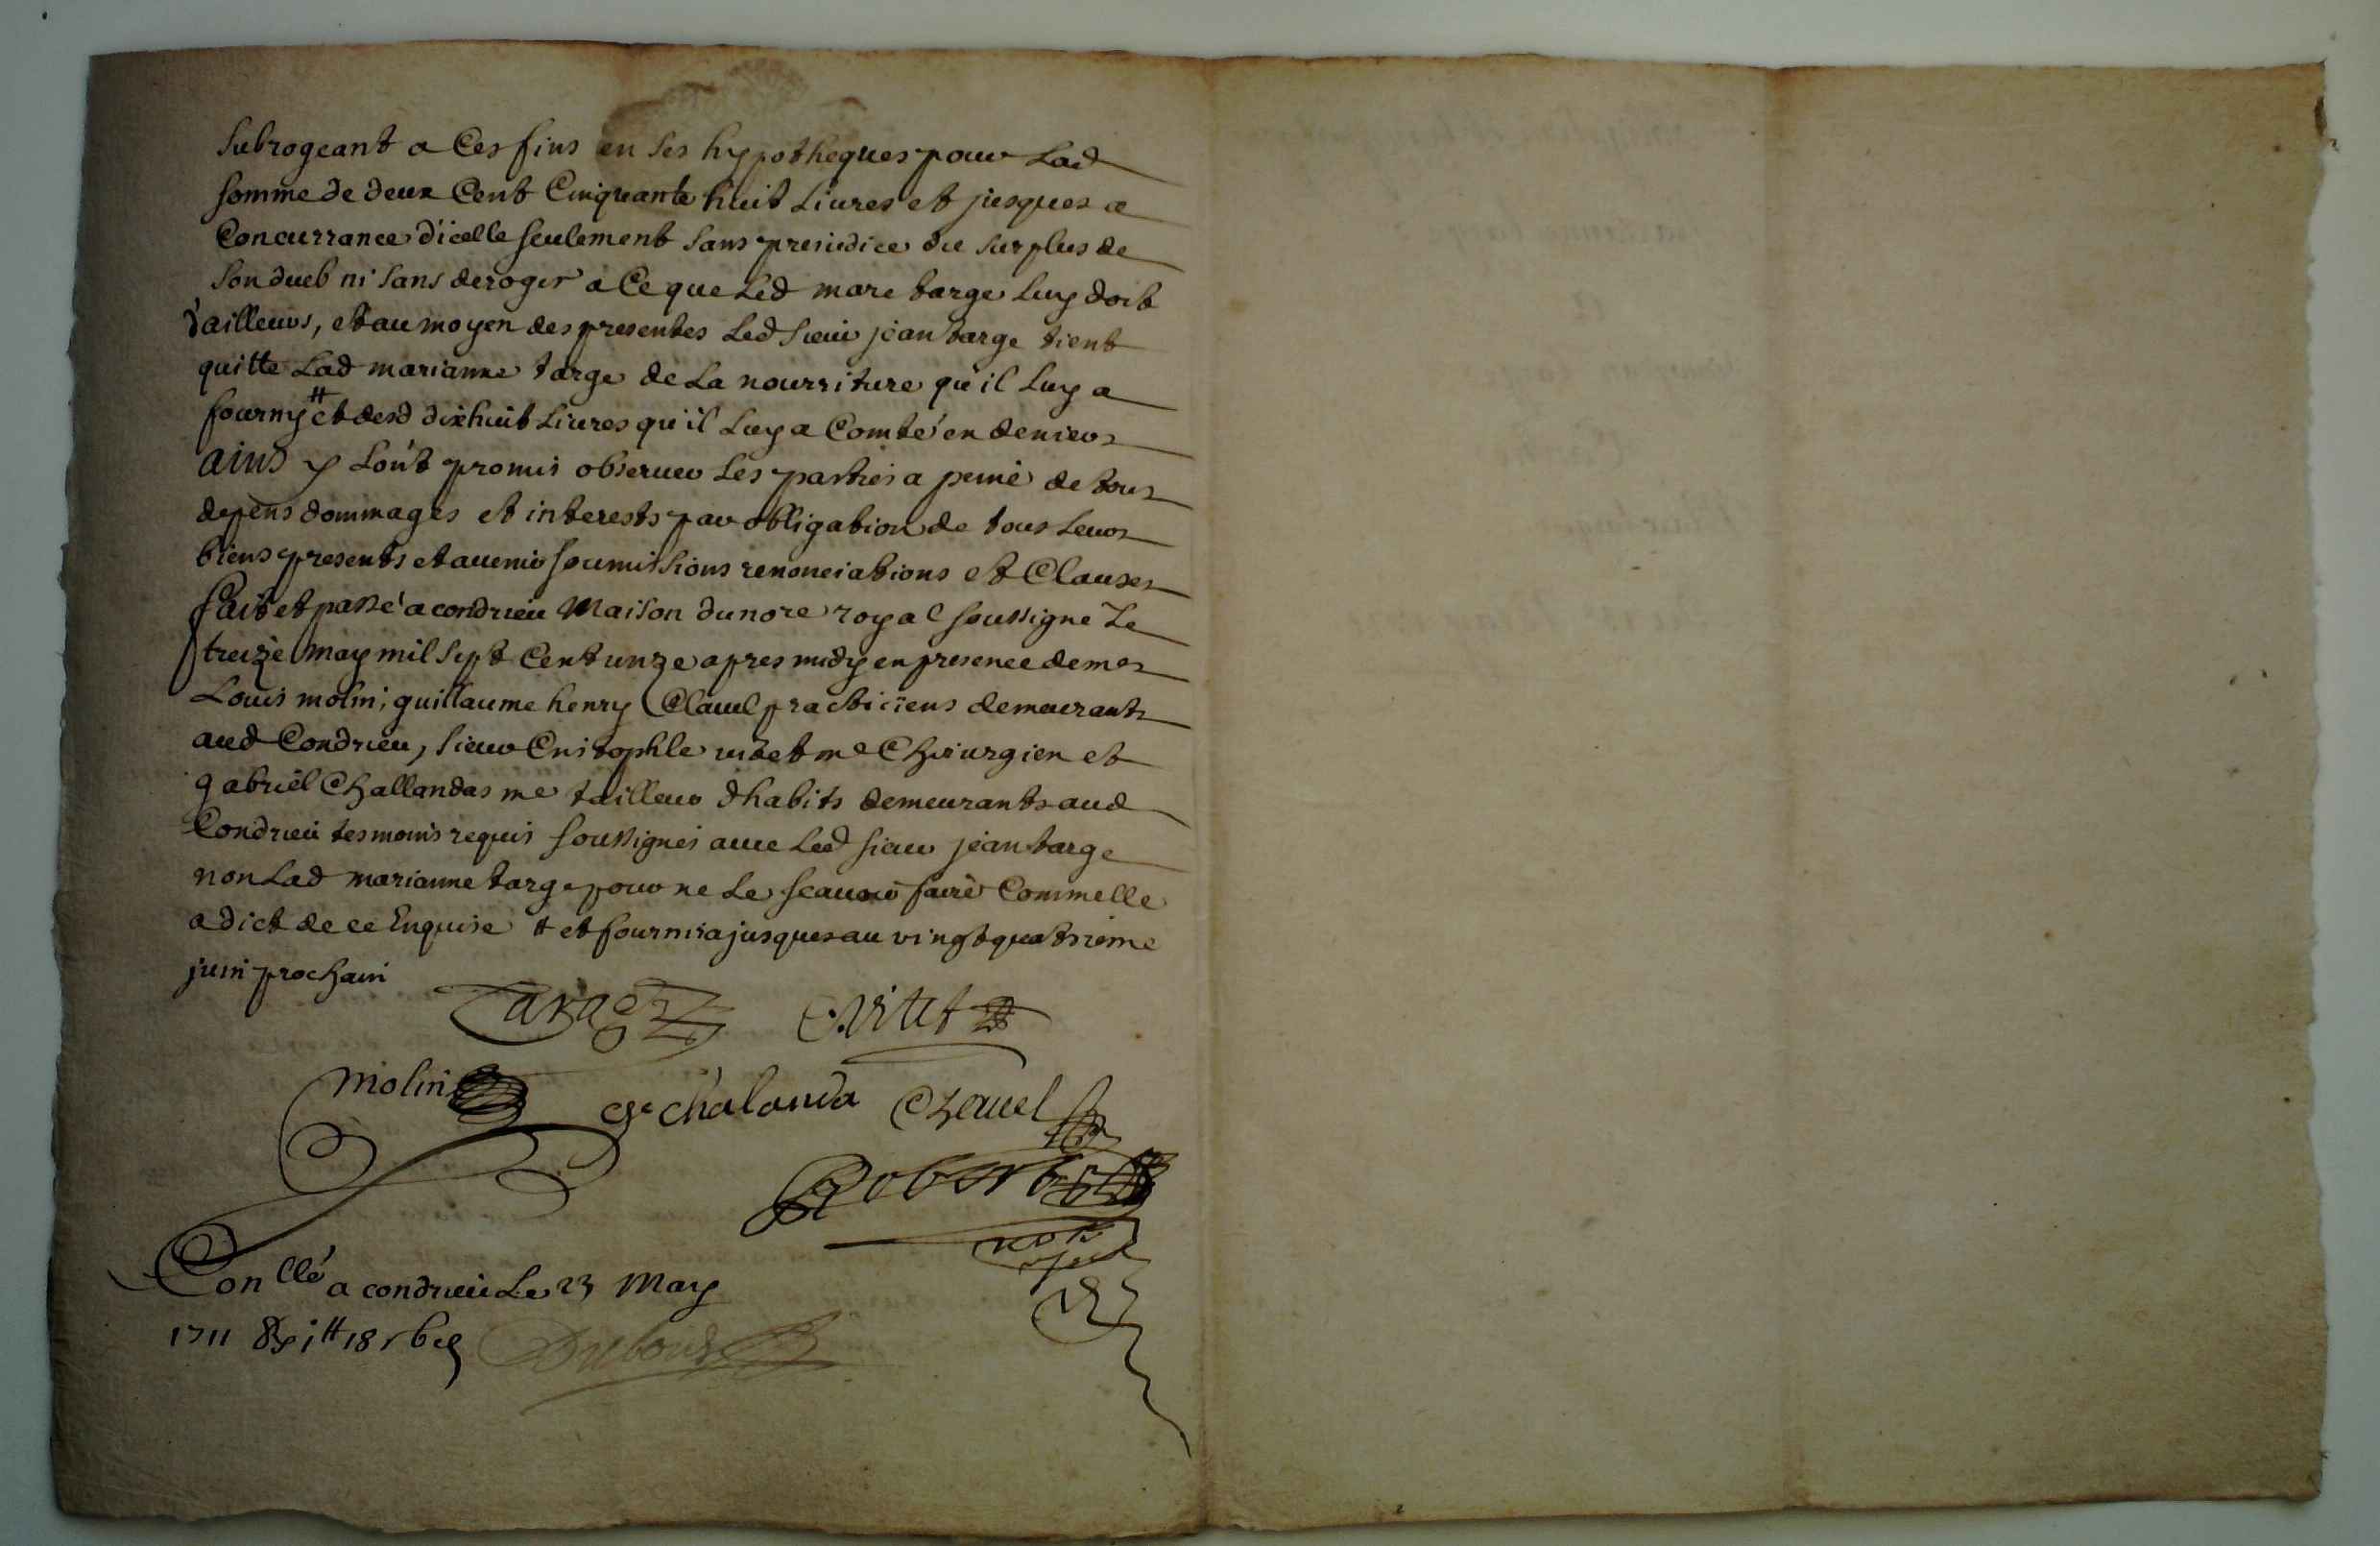 Subrogeant a Ces fins en ses hypotheques pour Lad
somme de deux Cent Cinquante huit Liures et jusques a
Concurrance d'icelle seulement sans preiudice du surplus de
son dueb ni sans deroger a Ce que Led marc targe luy doit
d'ailleurs, et au moyen des presentes Led sieur jean targe tient
quitte Lad marianne targe de La nourriture qu'il Luy a
fourny # et desd dixhuit Liures qu'il Luy a Comté en deniers
ains y L'ont promis obseruer Les parties a peine de tous
depens dommages et interests par obligation de tous Leurs
biens presents et auenir soumissions renonciations et Clauses
fait et passé a condrieu Maison du nore royal soussigne Le
treize may mil sept Cent unze apres midy en presence de mes
Louis molin, guillaume henry Clauel practiciens demeurants
aud Condrieu, sieur Cristophle vitet me Chirurgien et
gabriel Challandas me tailleur d'habits demeurants aud
Condrieu tesmoins requis soussignés auec Led sieur jean targe
non Lad marianne targe pour ne Le scauoir faire Comme elle
a dict de ce Enquise # et fournira jusques au vingt quatrieme
juin prochain
Targe C. vitet
molin G. chalanda Clauel
Robert
not
Conllé a condrieu Le 23 May
1711 R 1# 18 s 6 d Dubourg